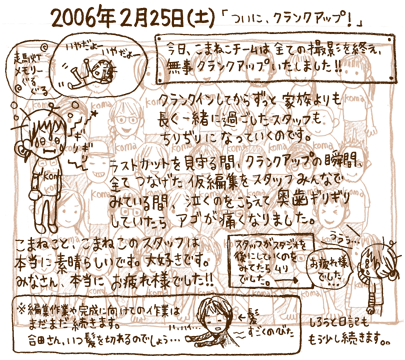 2006年2月25日(土)「ついに、クランクアップ!」
走馬灯
メモリー
ぐる
ぐる
いやだよ
いやだよ
今日、こまねこチームは全ての撮影を終え、
無事クランクアップいたしました!!
クランクインしてからずっと家族よりも
長く一緒に過ごしたスタッフも、
ちりぢりになっていくのです。
ギリ
ギリ
ラストカットを見守る間、クランクアップの瞬間、
全てつなげた仮編集をスタッフみんなで
みている間、泣くのをこらえて奥歯ギリギリ
していたら、アゴが痛くなりました。
こまねこと、こまねこのスタッフは
本当に素晴らしいです。大好きです。
みなさん、本当にお疲れ様でした!!
スタッフがスタジオを
後にしていくのを
みてたら
でした。
ううう…
お疲れ様
でした…
※編集作業や完成に向けての作業は
まだまだ続きます。
合田さん、いつ髪を切れるのでしょう…
髪
すごくのびた
しろうと日記も
もう少し続きます。
koma
koma
koma
koma